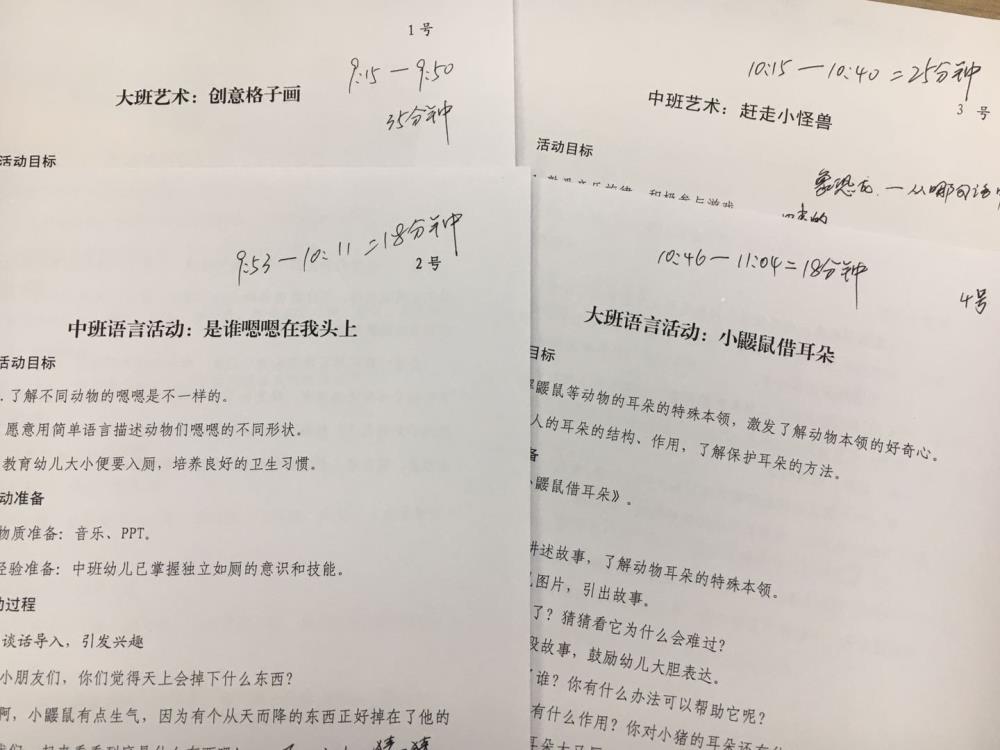 1 号
9:15 — 9:50
35分钟
大班艺术：创意格子画
活动目标
10:15 — 10:40 = 25分钟
3 号
中班艺术：赶走小怪兽
活动目标
和积极参与游戏
9:53 — 10:11 = 18分钟
2 号
中班语言活动：是谁嗯嗯在我头上
活动目标
.了解不同动物的嗯嗯是不一样的。
愿意用简单语言描述动物们嗯嗯的不同形状。
教育幼儿大小便要入厕，培养良好的卫生习惯。
动准备
物质准备：音乐、PPT。
经验准备：中班幼儿已掌握独立如厕的意识和技能。
动过程
谈话导入，引发兴趣
小朋友们，你们觉得天上会掉下什么东西？
啊，小鼹鼠有点生气，因为有个从天而降的东西正好掉在了他的
10:46 — 11:04 = 18分钟
4号
大班语言活动：小鼹鼠借耳朵
目标
鼹鼠等动物的耳朵的特殊本领，激发了解动物本领的好奇心。
人的耳朵的结构、作用，了解保护耳朵的方法。
备
小鼹鼠借耳朵》。
讲述故事，了解动物耳朵的特殊本领。
图片，引出故事。
了？猜猜看它为什么会难过？
段故事，鼓励幼儿大胆表达。
谁？你有什么办法可以帮助它呢？
有什么作用？你对小猪的耳朵还有什